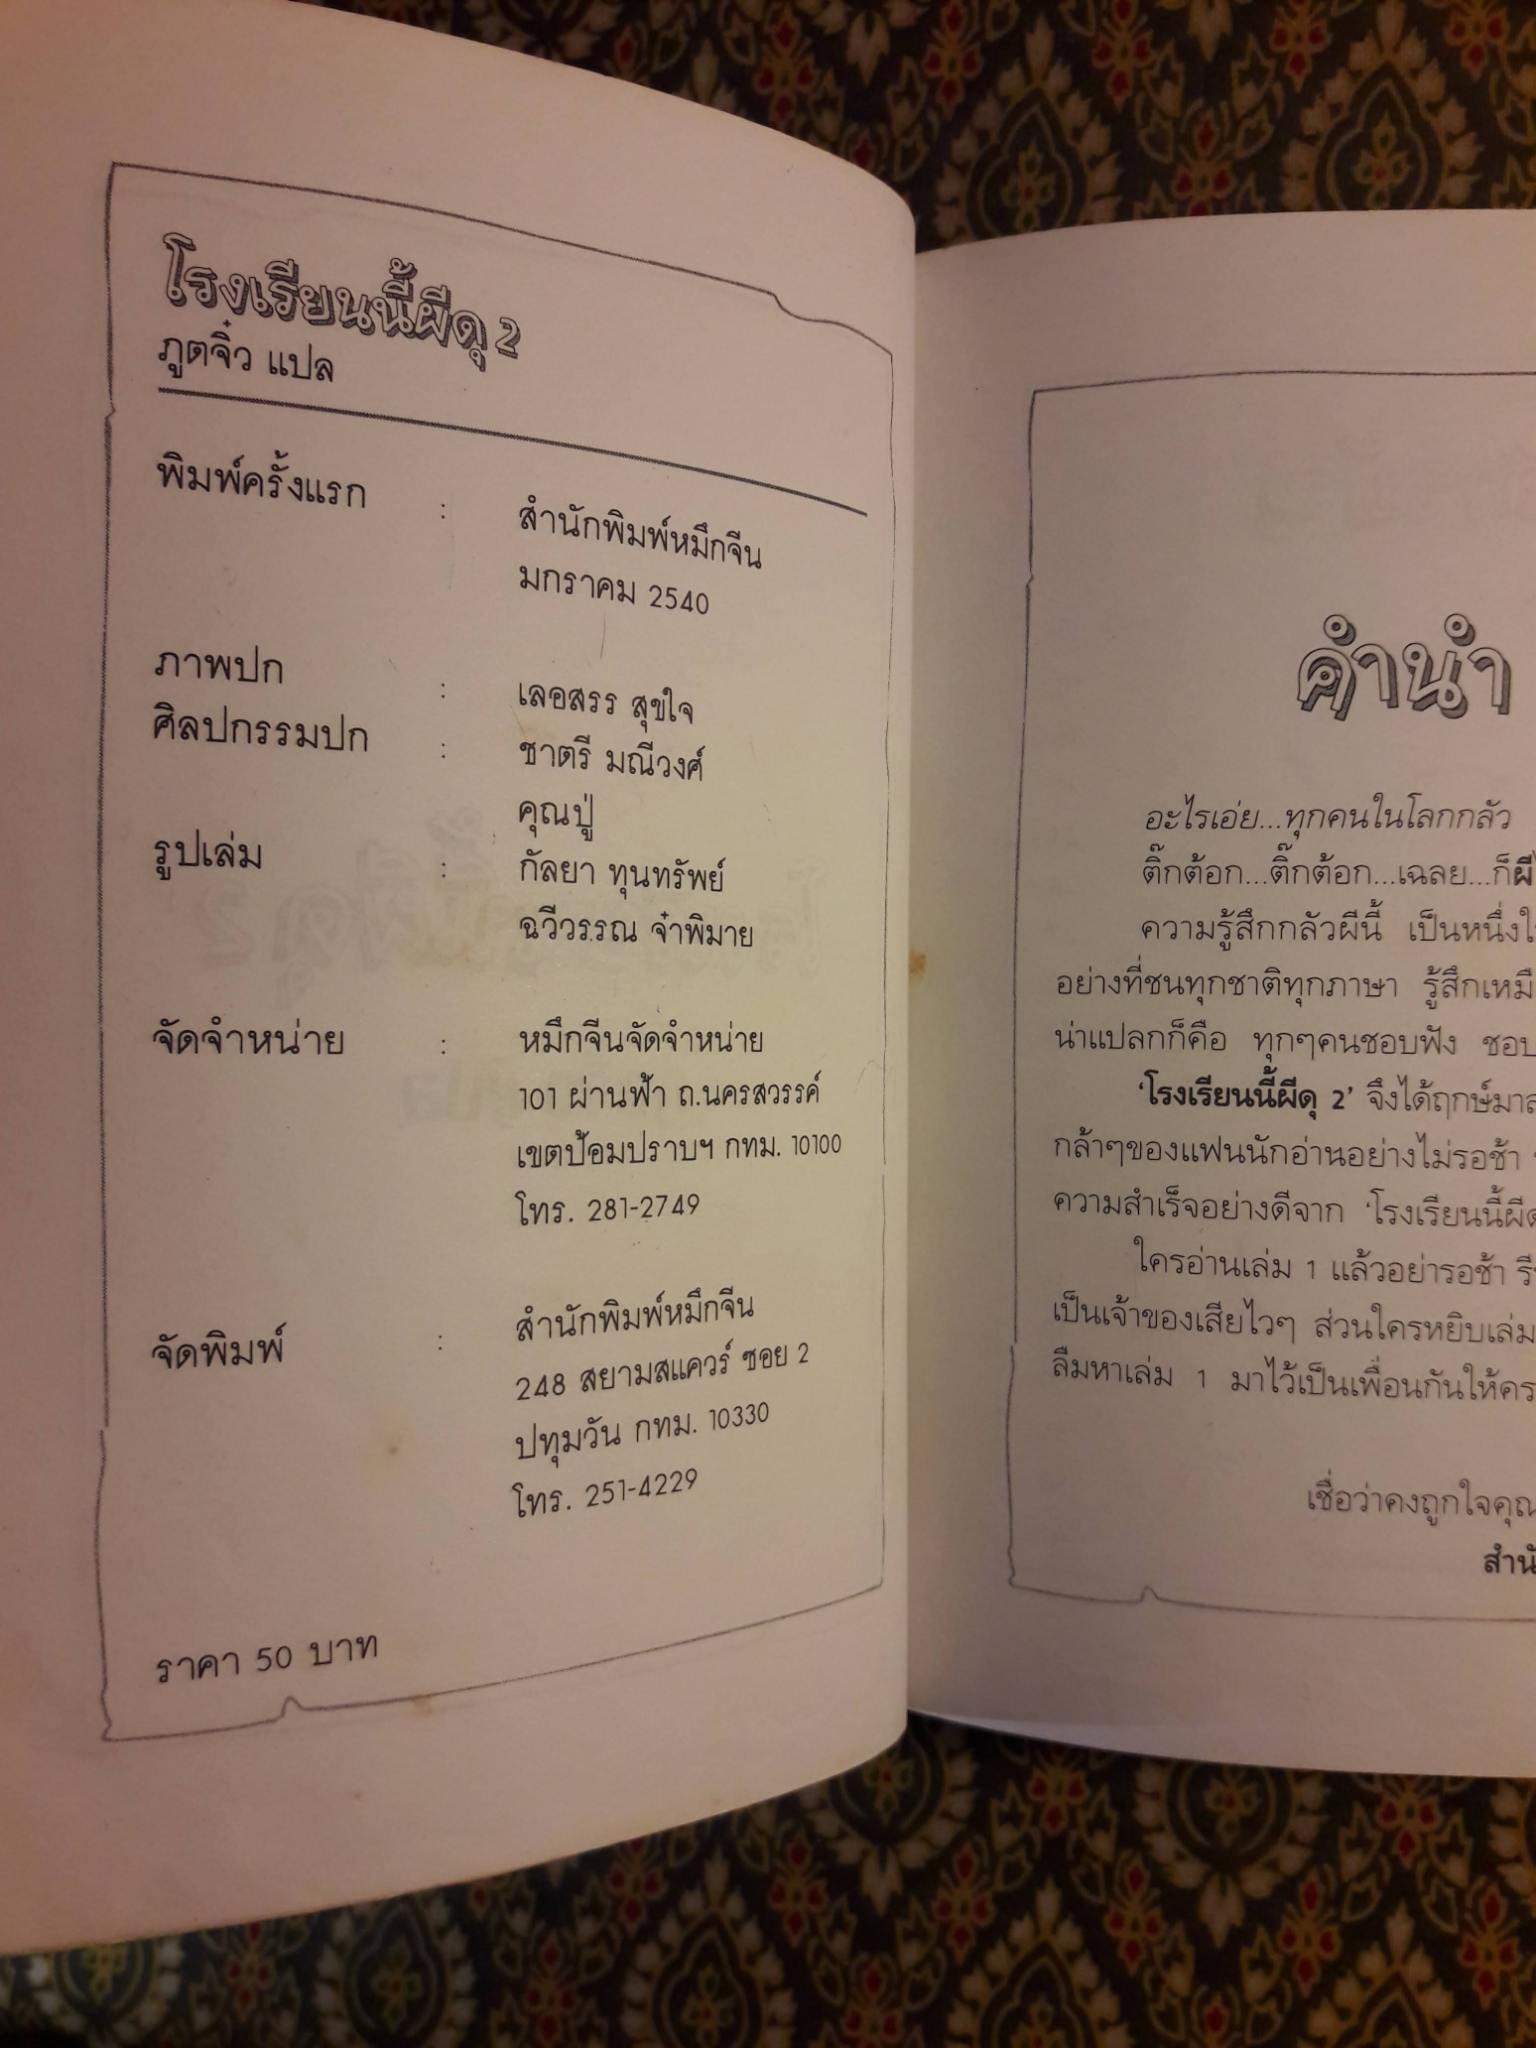 โรงเรียนนี้ผีดุ 2
ภูตจิ๋ว แปล
พิมพ์ครั้งแรก : สำนักพิมพ์หมึกจีน
มกราคม 2540
ภาพปก : เลอสรร สุขใจ
ศิลปกรรมปก : ชาตรี มณีวงศ์
คุณปู่
รูปเล่ม : กัลยา ทุนทรัพย์
ฉวีวรรณ จ๋าพิมาย
จัดจำหน่าย : หมึกจีนจัดจำหน่าย
101 ผ่านฟ้า ถ.นครสวรรค์
เขตป้อมปราบฯ กทม. 10100
โทร. 281-2749
จัดพิมพ์ : สำนักพิมพ์หมึกจีน
248 สยามสแควร์ ซอย 2
ปทุมวัน กทม. 10330
โทร. 251-4229
ราคา 50 บาท
คำนำ
อะไรเอ่ย...ทุกคนในโลกกลัว
ติ๊กต้อก...ติ๊กต้อก...เฉลย...ก็ผี
ความรู้สึกกลัวผีนี้ เป็นหนึ่ง
อย่างที่ชนทุกชาติทุกภาษา รู้สึก
น่าแปลกก็คือ ทุกๆคนชอบฟัง ชอบ
'โรงเรียนนี้ผีดุ 2' จึงได้ฤกษ์
กล้าๆของแฟนนักอ่านอย่างไม่รอช้า
ความสำเร็จอย่างดีจาก 'โรงเรียนนี้
ใครอ่านเล่ม 1 แล้วอย่ารอช้า
เป็นเจ้าของเสียไวๆ ส่วนใครหยิบเล่ม
ลืมหาเล่ม 1 มาไว้เป็นเพื่อนกันให้
เชื่อว่าคงถูกใจคุณ